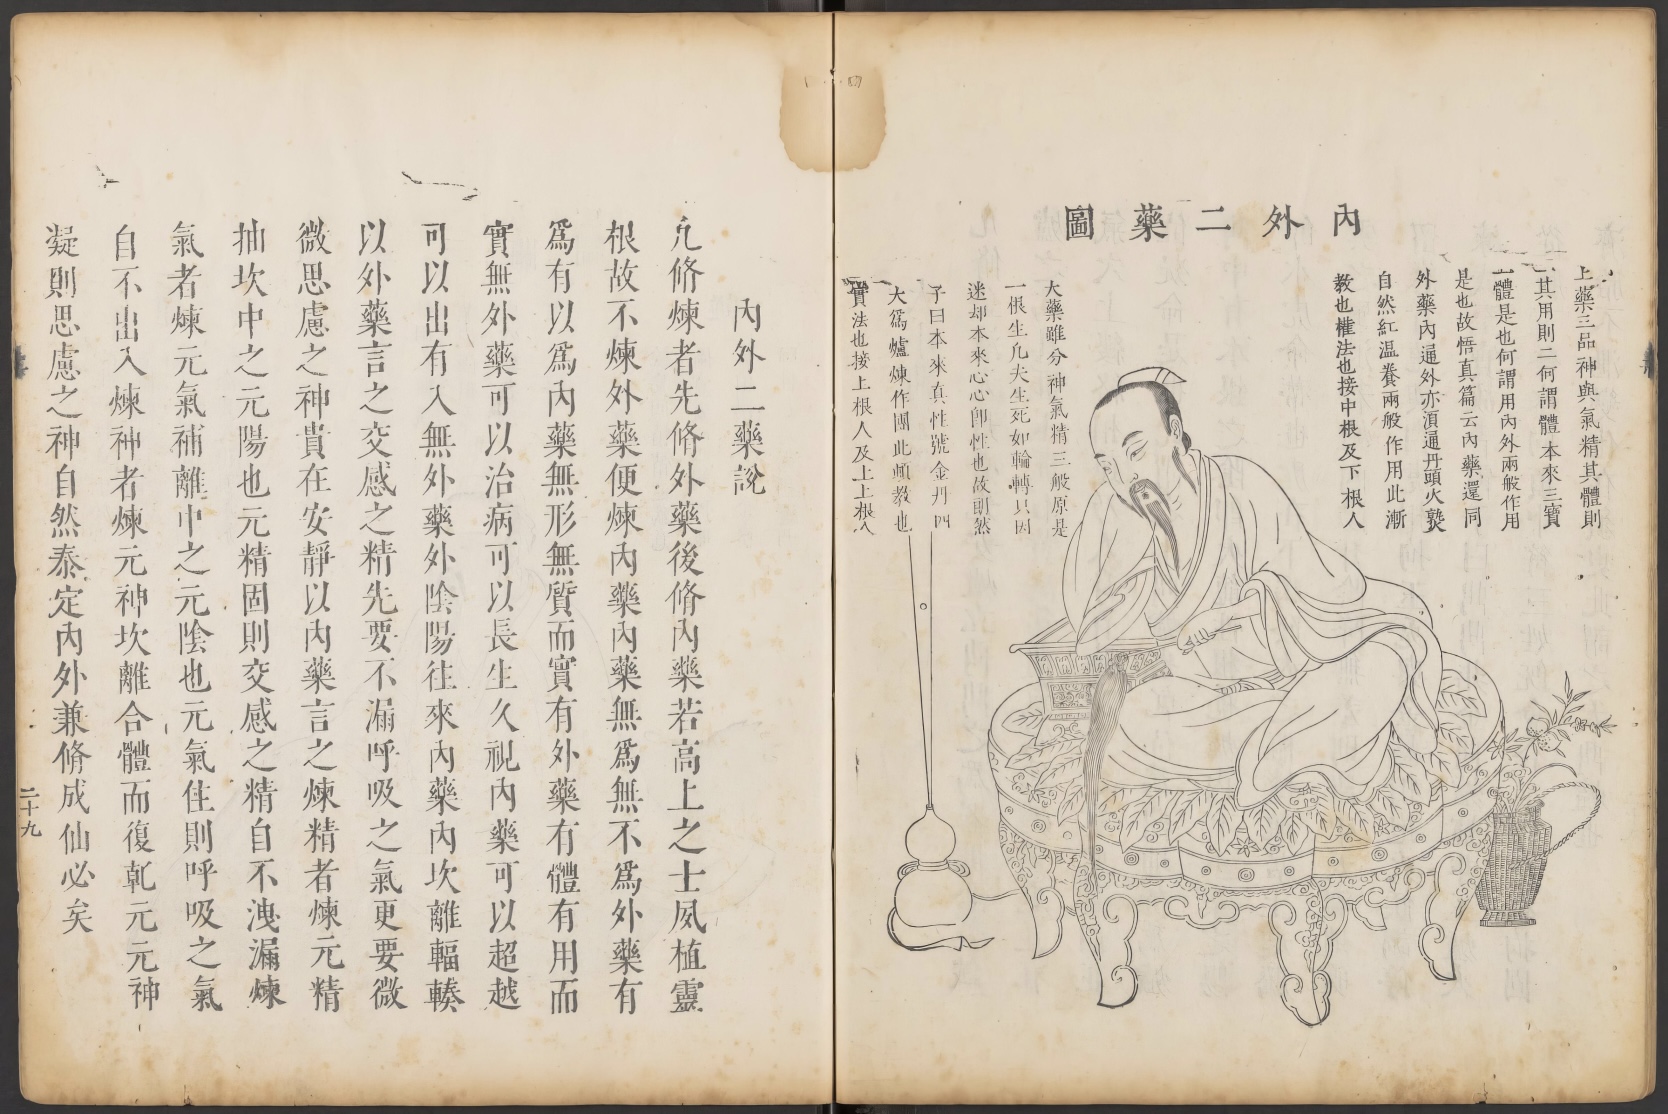 內外二藥圖
上藥三品神與氣精其體則
一其用則二何謂體本來三寶
一體是也何謂用內外兩般作用
是也故悟真篇云內藥還同
外藥內通外亦須通丹頭火熱
自然紅溫養兩般作用此漸
教也權法也接中根及下根人
大藥雖分神氣精三般原是
一根生凡夫生死如輪轉只因
迷却本來心心卽性也故朗然
子曰本來真性號金丹四
大爲爐煉作團此頓教也
實法也接上根人及上上根人
內外二藥說
凡脩煉者先脩外藥後脩內藥若高上之士夙植靈
根故不煉外藥便煉內藥內藥無爲無不爲外藥有
爲有以爲內藥無形無質而實有外藥有體有用而
實無外藥可以治病可以長生久視內藥可以超越
可以出有入無外藥外陰陽往來內藥內坎離輻輳
以外藥言之交感之精先要不漏呼吸之氣更要微
微思慮之神貴在安靜以內藥言之煉精者煉元精
抽坎中之元陽也元精固則交感之精自不洩漏煉
氣者煉元氣補離中之元陰也元氣住則呼吸之氣
自不出入煉神者煉元神坎離合體而復乾元元神
凝則思慮之神自然泰定內外兼脩成仙必矣
二十九